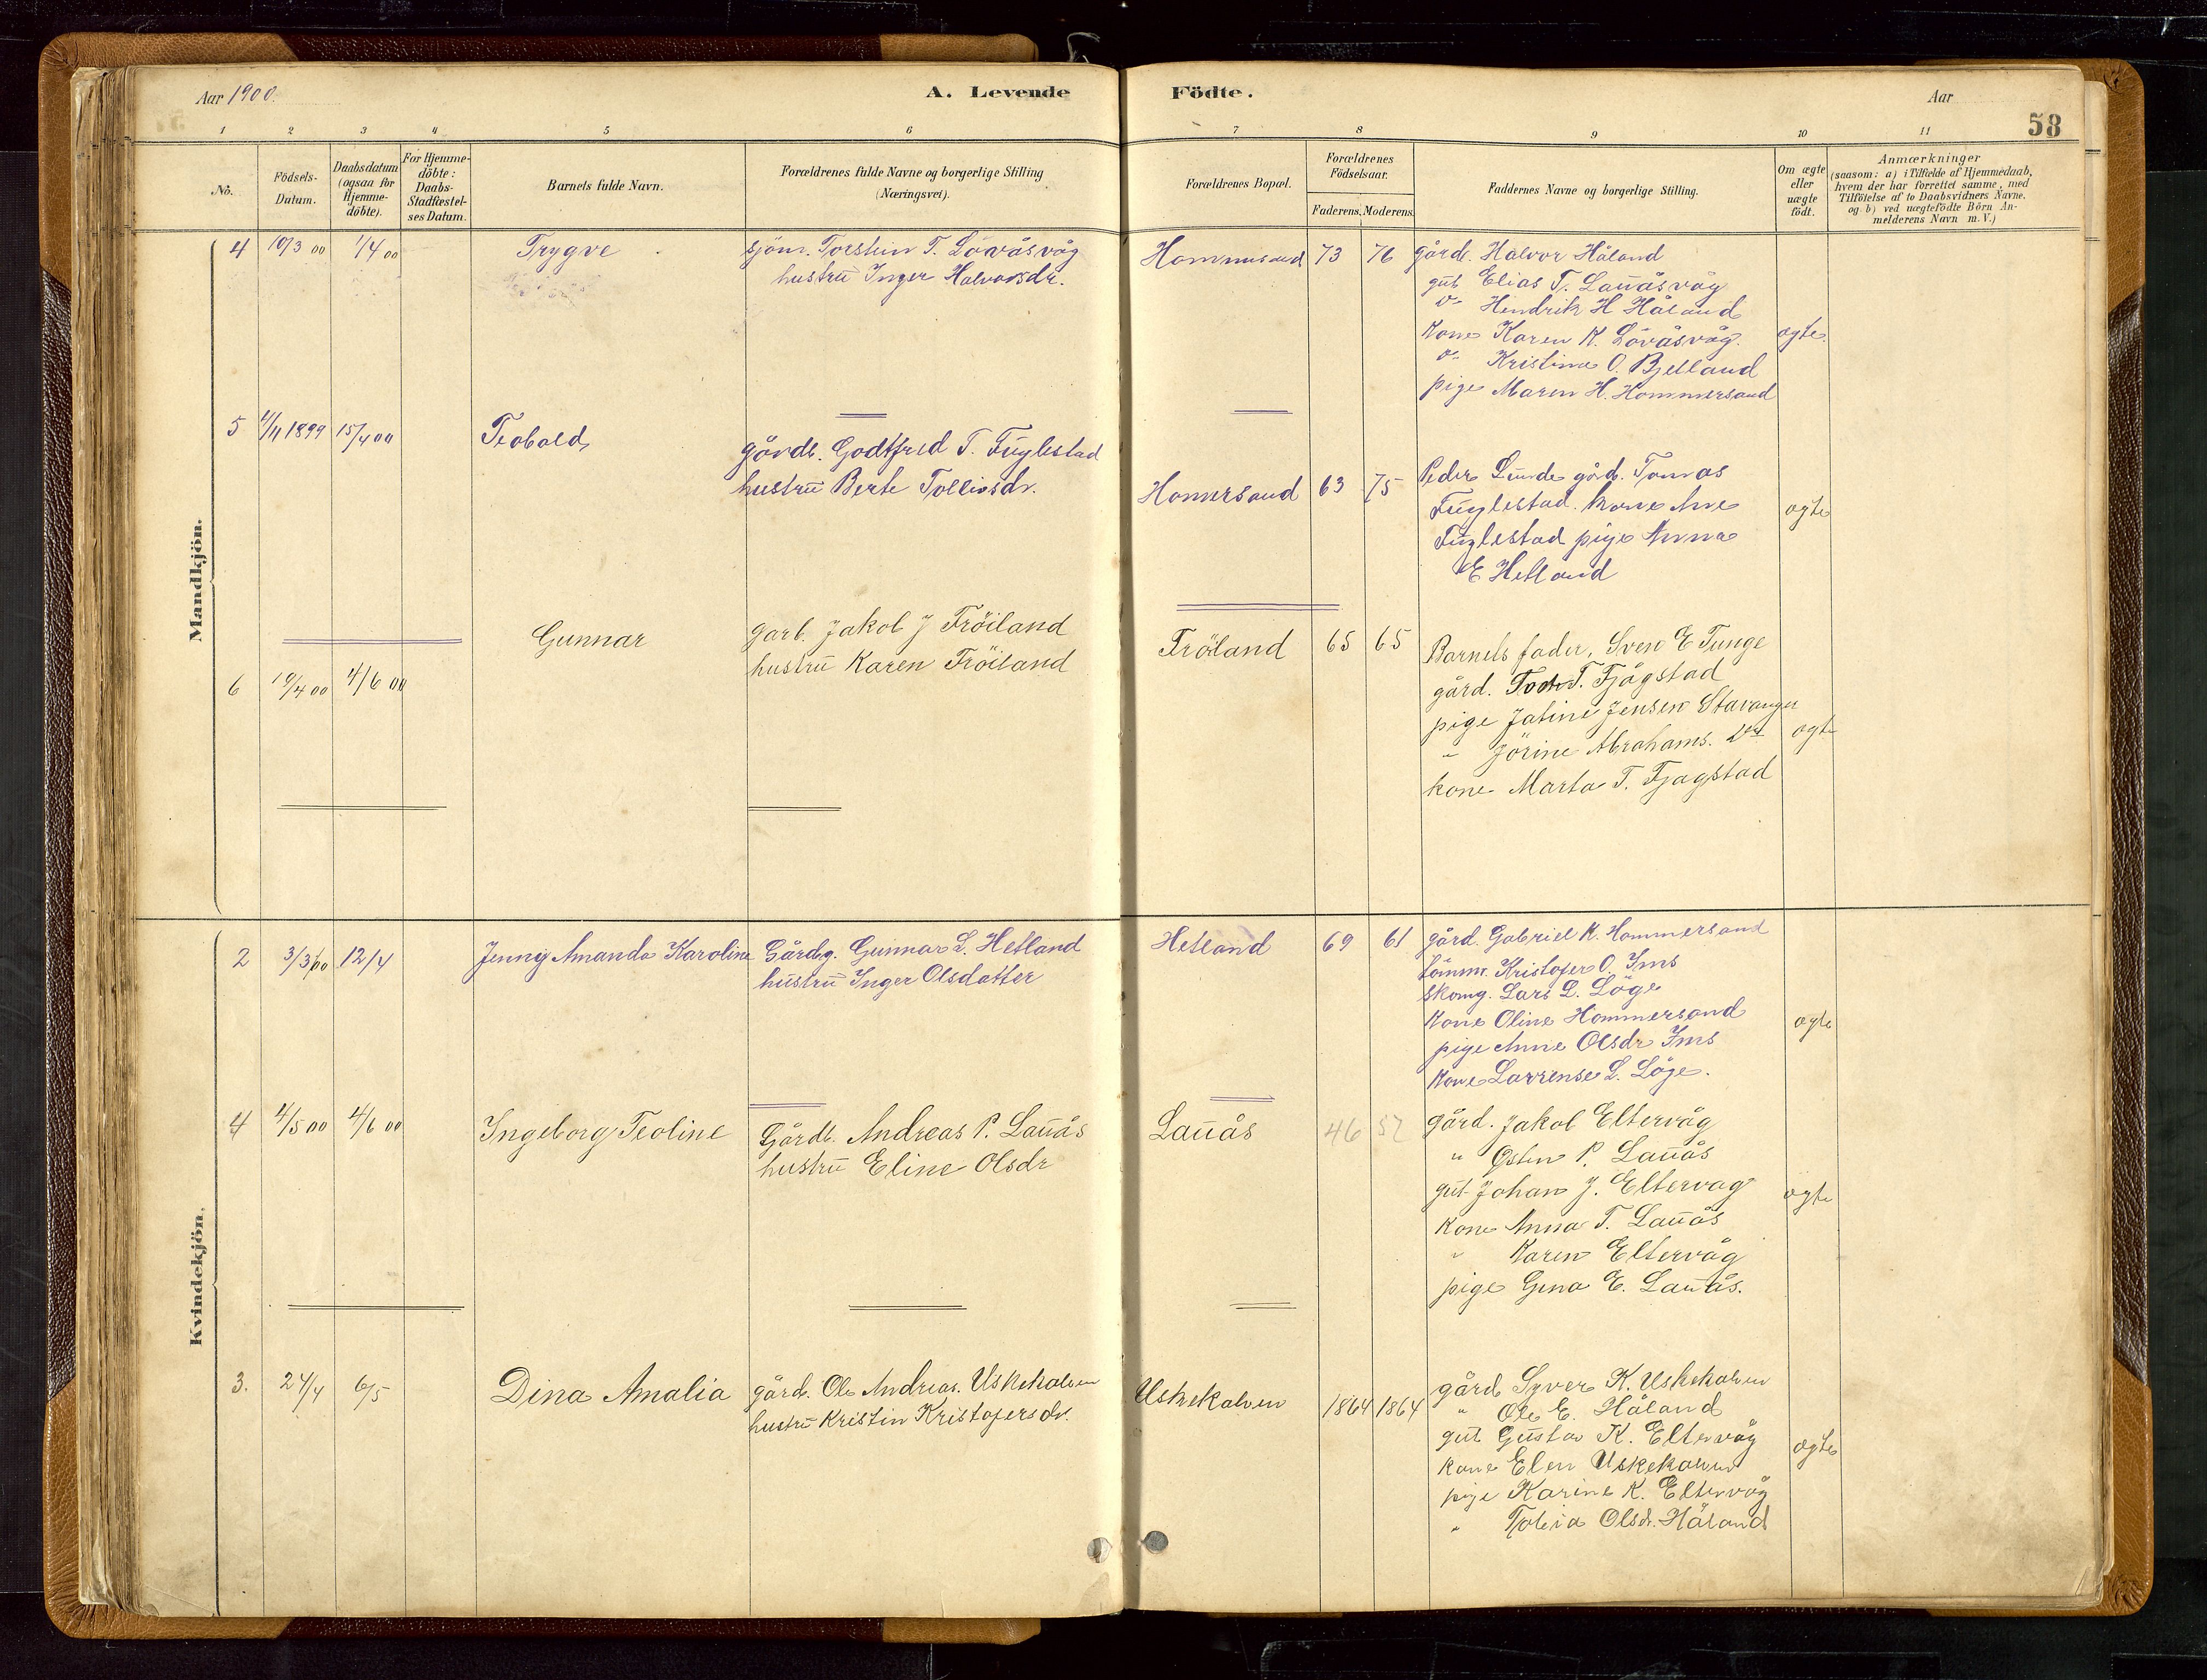 Aar 1900.
A. Levende Födte.
Aar
58
1 2 3 4 5 6 7 8 9 10 11
No.
Födsels-Datum.
Daabsdatum (ogsaa for Hjemme-döbte).
For Hjemme-döbte: Daabs-Stadfæstel-ses Datum.
Barnets fulde Navn.
Forældrenes fulde Navne og borgerlige Stilling
(Næringsvei).
Forældrenes Bopæl.
Forældrenes Födselsaar.
Faderens. Moderens.
Faddernes Navne og borgerlige Stilling.
Om ægte eller uægte födt.
Anmærkninger
(saasom: a) i Tilfælde af Hjemmedaab,
hvem der har forrettet samme, med
Tilföielse af to Daabsvidners Navne.
og b) ved uægtefödte Börn An-
melderens Navn m. V.)
Mandkjön.
4 10/3 00 1/4 00 Trygve
sjöm. Torstein T. Lövåsvåg
hustru Inger Halvorsdr.
Hommersand 73 76
gård. Halvor Håland
gut Elias T. Lauåsvåg
do Hendrik H Håland
Kone Karen K. Lövåsvåg.
do Kristine O. Bjelland
pige Maren H. Hommersand
ægte.
5 4/11 1899 15/4 00 Teobald
gårdb. Godtfred T. Fuglestad
hustru Berte Tolleisdr.
Homersand 63 75
Peder Lunde gård. Tomas
Fuglestad. kone Ane
Fuglestad pige Anna
E Hetland
ægte
6 19/4 00 4/6 00 Gunnar
garb. Jakob J Fröiland
hustru Karen Fröiland
Fröiland 65 65
Barnets fader, Sven E Tunge
gård. T. Fjågstad
pige Jatine Jensen Stavanger
" Jörine Abrahams. do
kone Marta T. Fjagstad
ægte
Kvindekjön.
2 3/3 00 12/4 Jenny Amanda Karoline
Gårdg. Gunnar L. Hetland
hustru Inger Olsdatter
Hetland 69 61
gård. Gabriel K. Hommersand
tömmr. Kristofer O. Ims
skomg. Lars L. Löge
Kone Oline Hommersand
pige Anne Olsdr Ims
Kone Lavrense L. Löge.
ægte
4 4/5 00 4/6 00 Ingeborg Teoline
Gårdb. Andreas P. Lauås
hustru Eline Olsdr
Lauås 46 52
gård. Jakob Eltervåg
" Osten P. Lauås
gut Johan J. Eltervag
Kone Anna T. Lauås
" Karen Eltervåg
pige Gina E. Lauås.
ægte
3. 24/4 6/5 Dina Amalia
gård. Ole Andreas. Uskekalven
hustru Kristin Kristofersdr.
Uskekalven 1864 1864
gård Syver K. Uskekalven
" Ole E. Håland
gut Gustav K. Eltervåg
kone Elen Uskekalven
pige Karine K. Eltervåg
" Olsdr. Håland
ægte